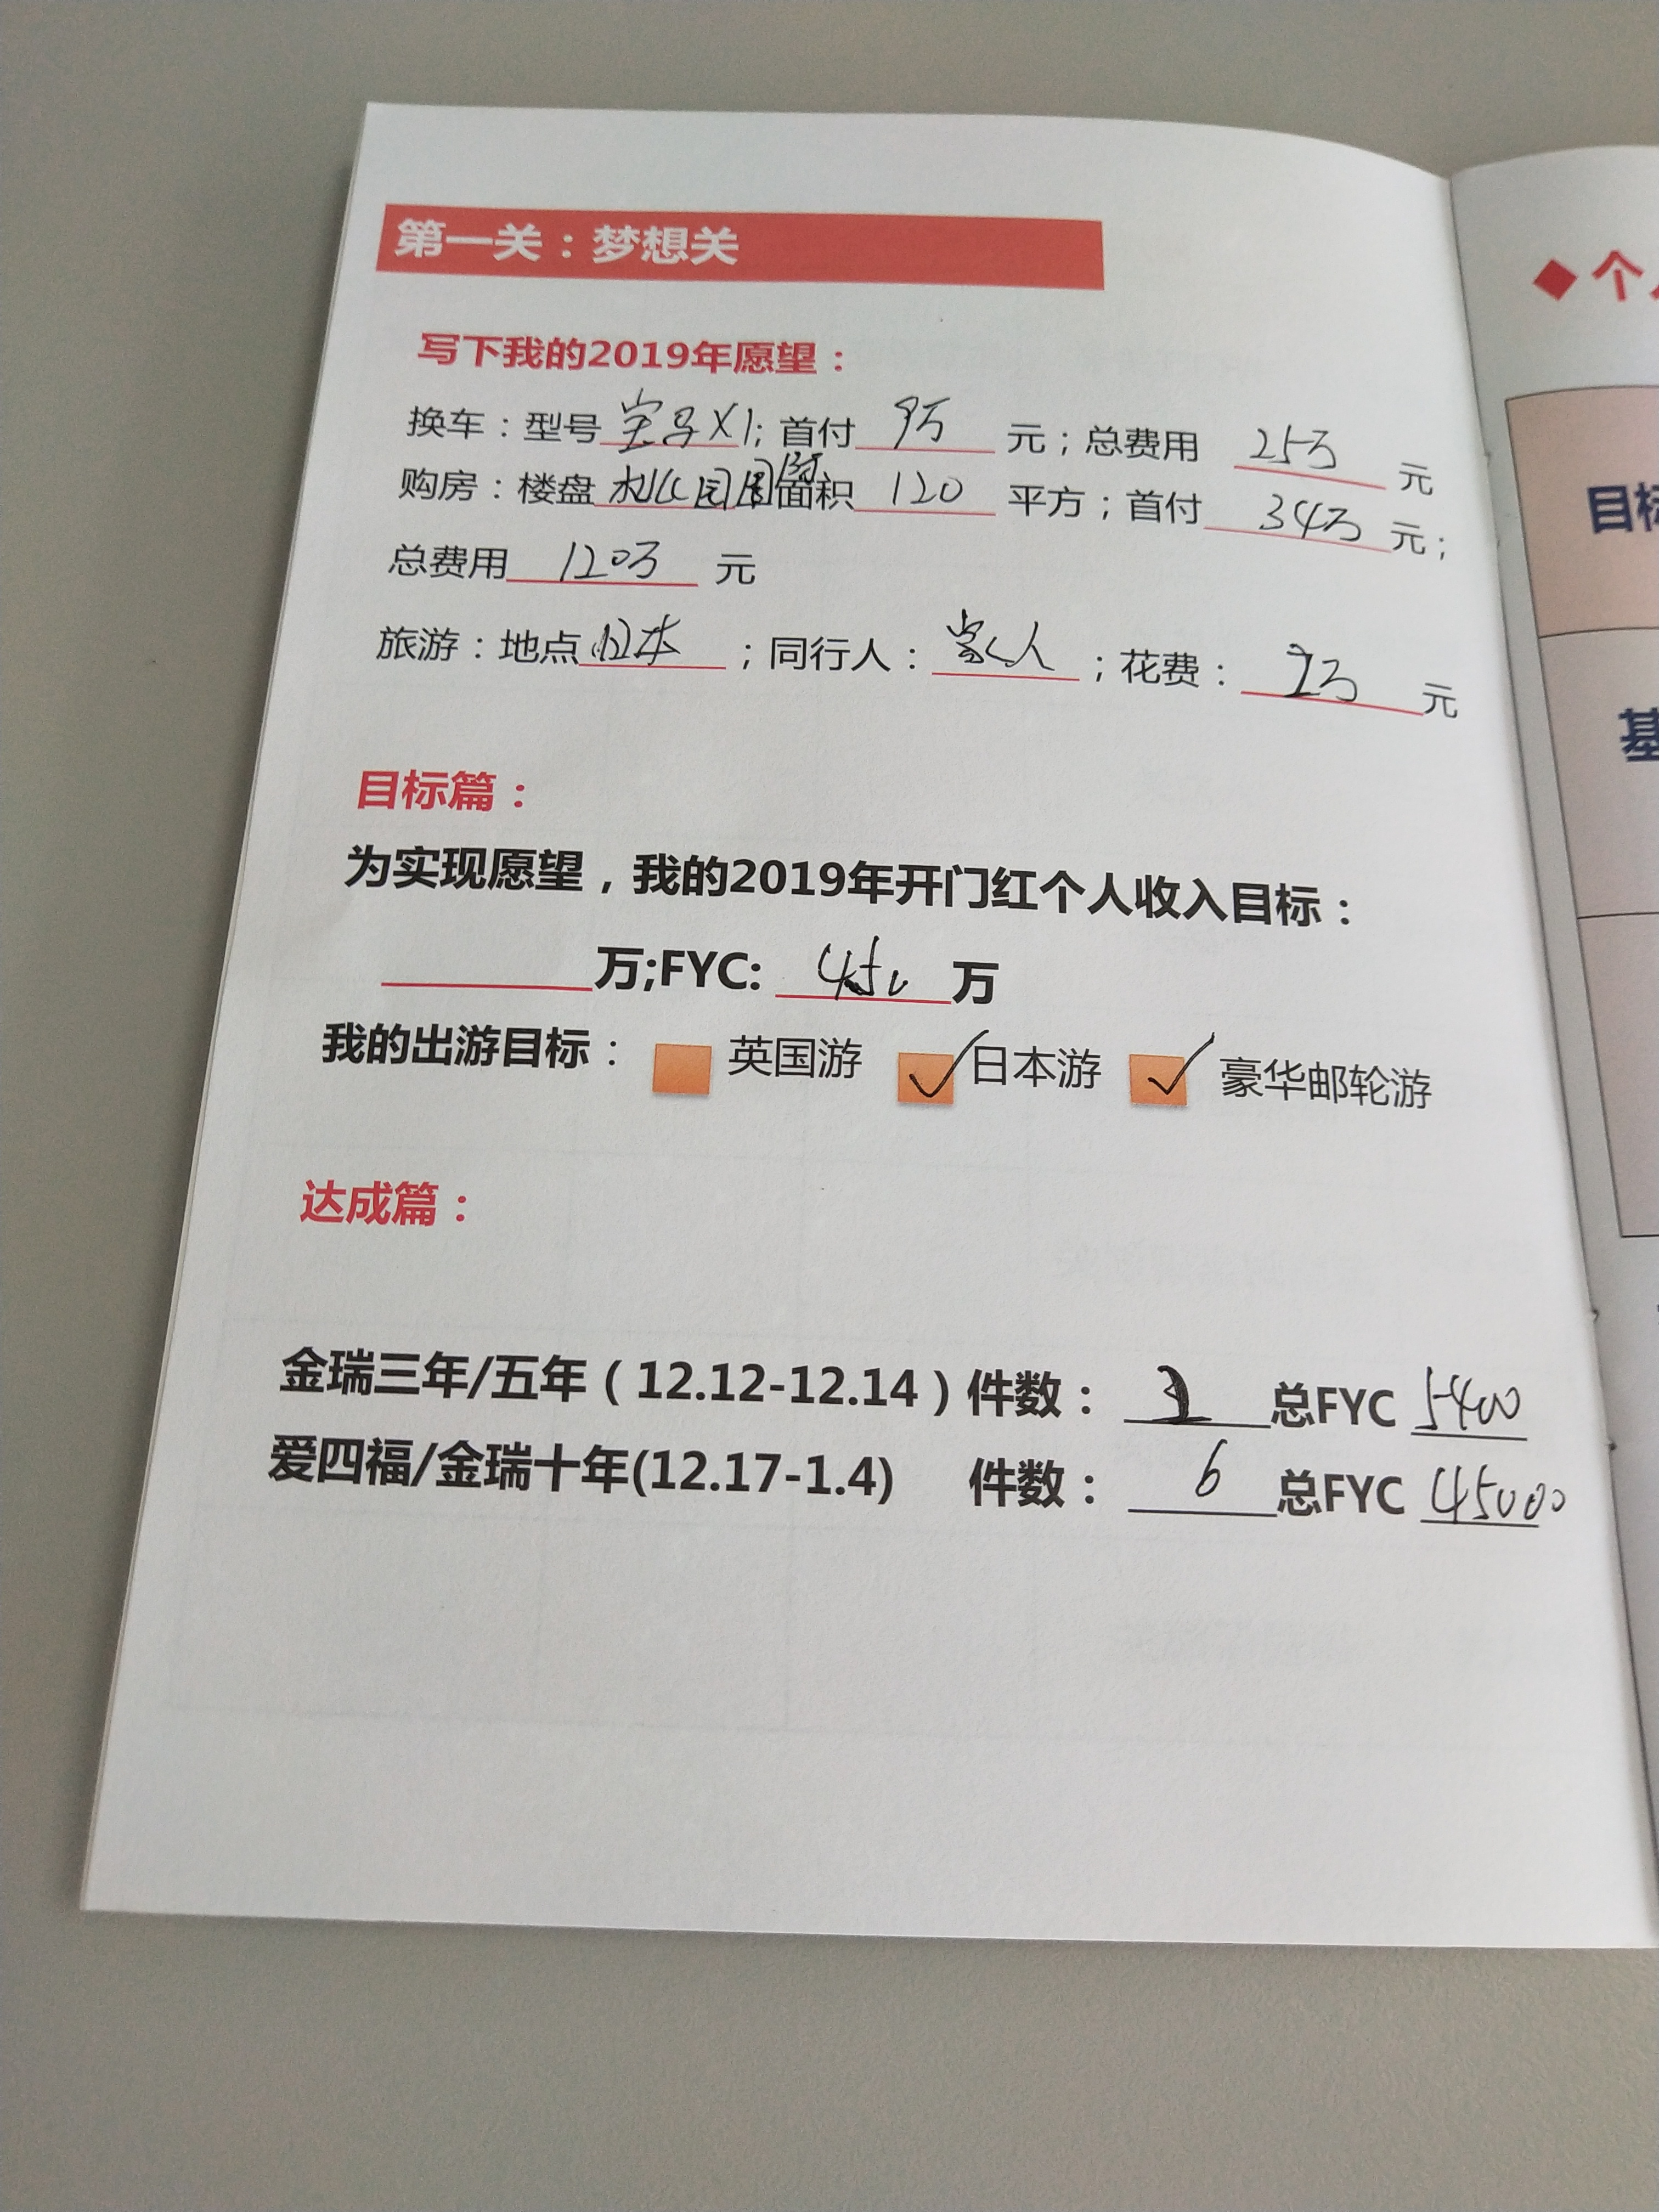 第一关：梦想关
写下我的2019年愿望：
换车：型号宝马X1；首付9万元；总费用25万元
购房：楼盘 面积120平方；首付34万元；
总费用120万元
旅游：地点日本；同行人：家人；花费：2万元
目标篇：
为实现愿望，我的2019年开门红个人收入目标：
万;FYC: 万
我的出游目标： 英国游 ✓日本游 ✓豪华邮轮游
达成篇：
金瑞三年/五年（12.12-12.14）件数： 总FYC 5400
爱四福/金瑞十年(12.17-1.4) 件数：6总FYC 45000
◆个
目标
基